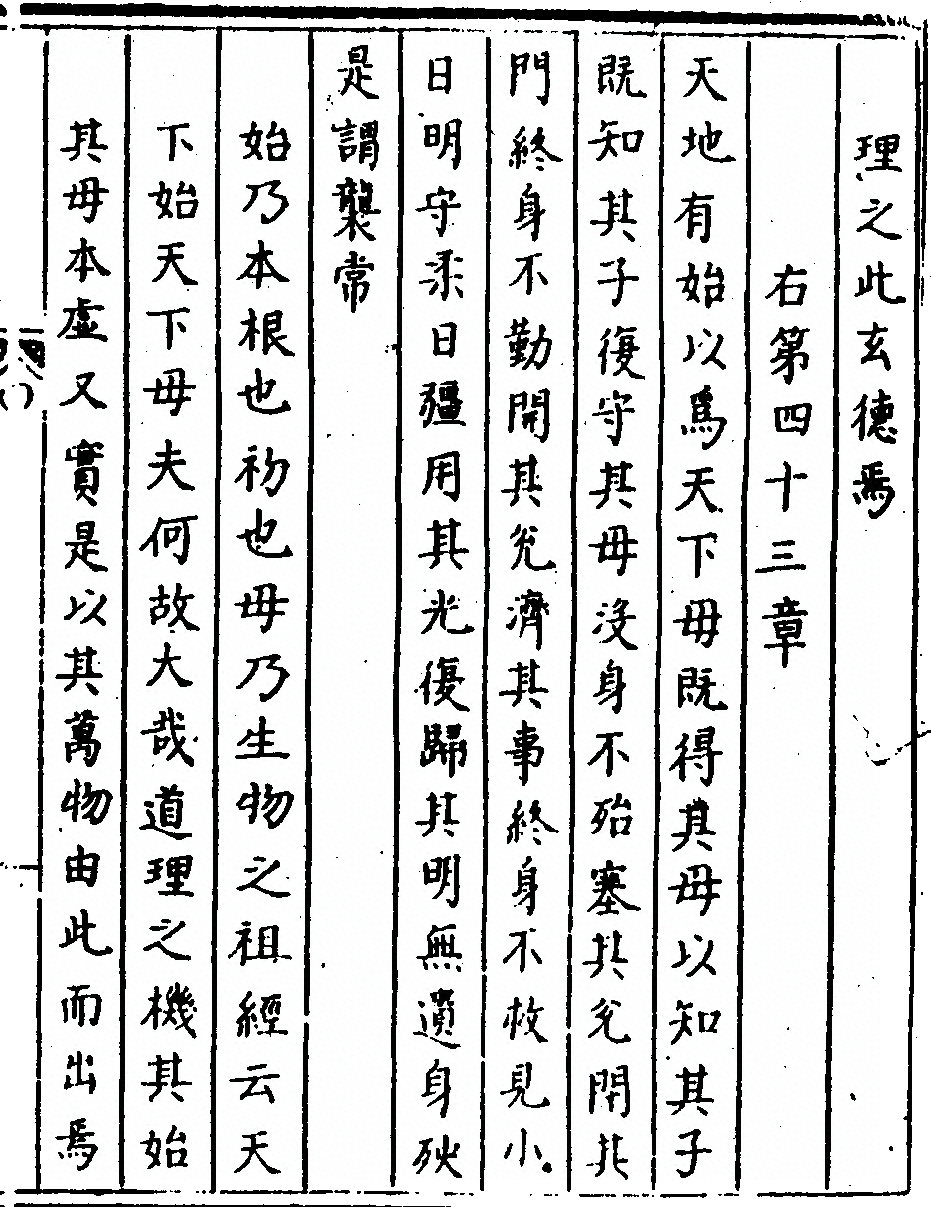 理之此玄德焉
右第四十三章
天地有始以爲天下母既得其母以知其子
既知其子復守其母沒身不殆塞其兌閉其
門終身不勤開其兌濟其事終身不救見小
日明守柔日彊用其光復歸其明無遺身殃
是謂襲常
始乃本根也初也母乃生物之祖經云天
下始天下母夫何故大哉道理之機其始
其母本虛又實是以其萬物由此而出焉